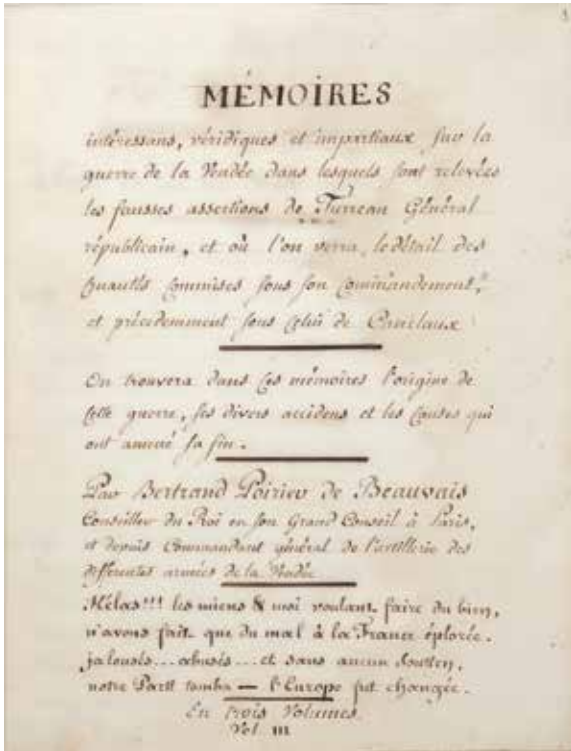 MÉMOIRES
intéressans, véridiques et impartiaux sur la
guerre de la Vendée dans lesquels sont relevées
les fausses assertions de Turreau Général
républicain, et où l'on verra, le détail des
cruautés commises sous son commandement,
et précédemment sous celui de Canclaux
On trouvera dans ces mémoires l'origine de
cette guerre, ses divers accidens et les causes qui
ont amené sa fin.
Par Bertrand Poirier de Beauvais
Conseiller du Roi en son Grand Conseil à Paris,
et depuis Commandant général de l'artillerie des
différentes armées de la Vendée
Hélas!!! les miens & moi voulant faire du bien,
n'avons fait que du mal à la France éplorée.
jalousés... abusés... et sans aucun soutien,
notre Parti tomba — l'Europe fut changée.
En trois Volumes.
Vol. III